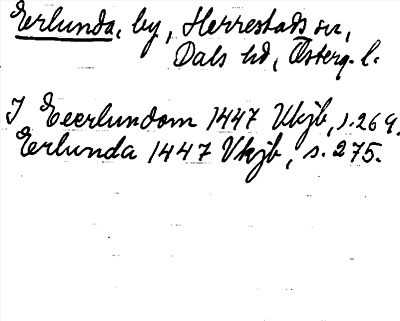 Erlunda, by, Herrestads sn,
Dals hd, Österg. l.
I Eeerlundom 1447 Vkjb, s. 269.
Erlunda 1447 Vkjb, s. 275.